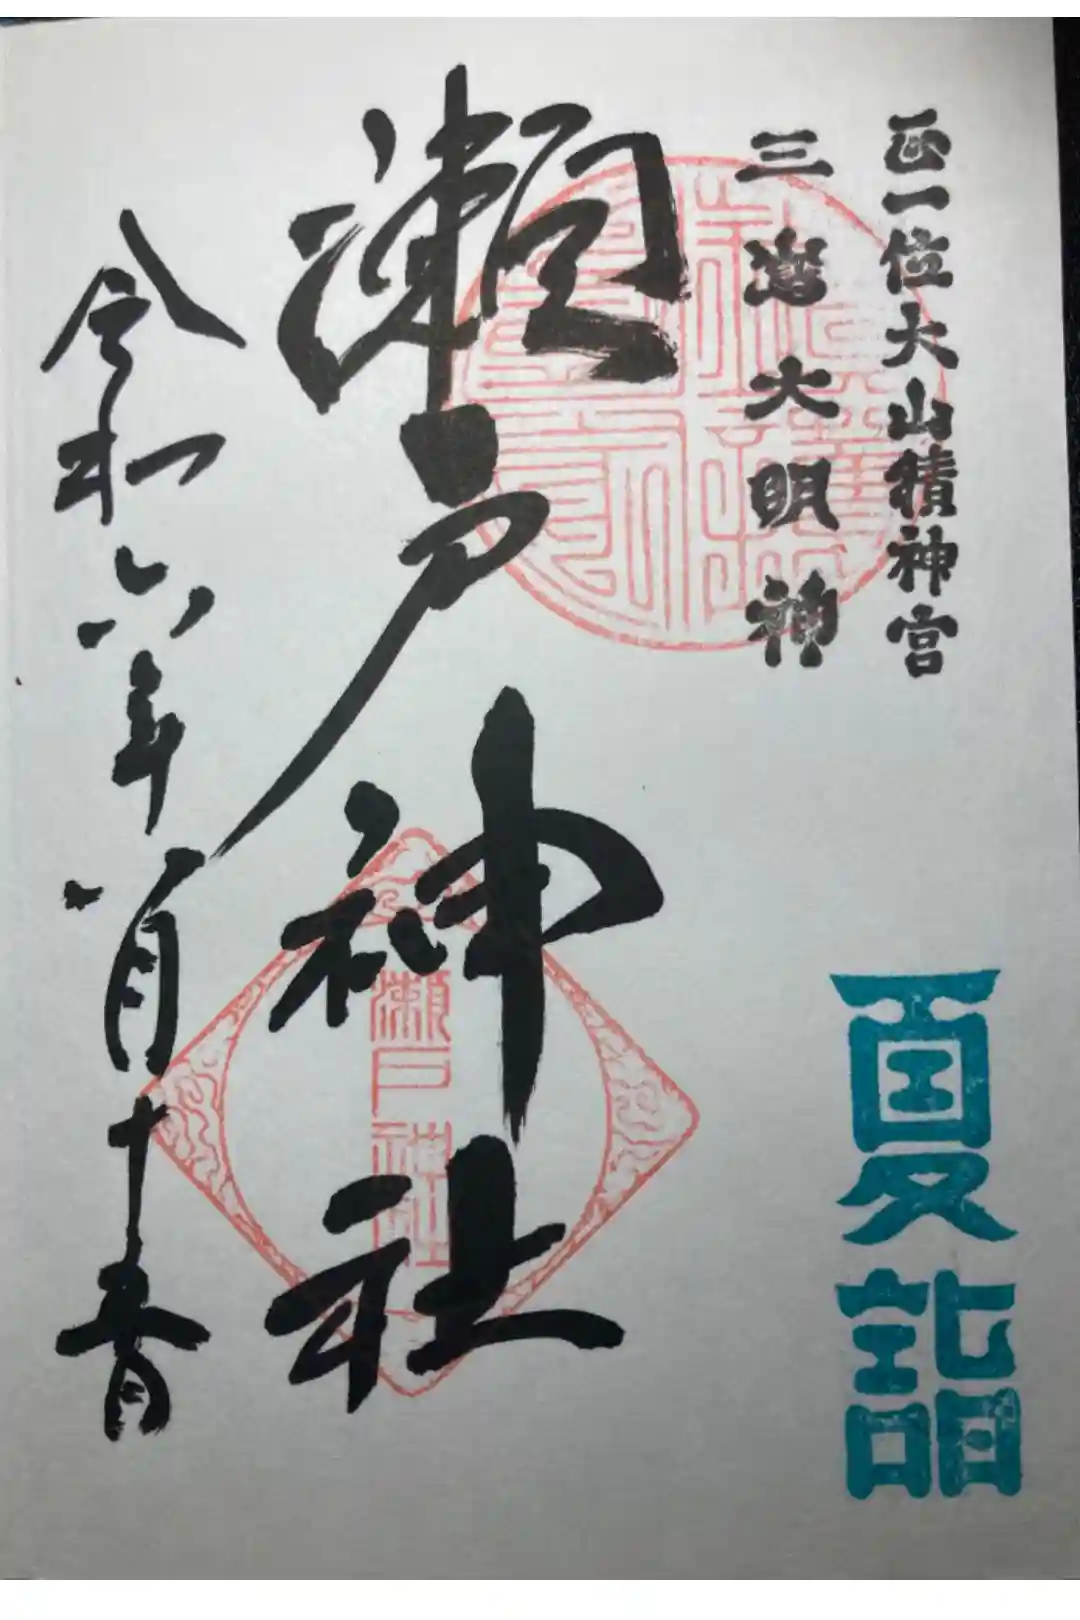 正一位大山積神宮
三嶌大明神
夏詣
瀬戸神社
瀬戸神社
令和六年八月十五日